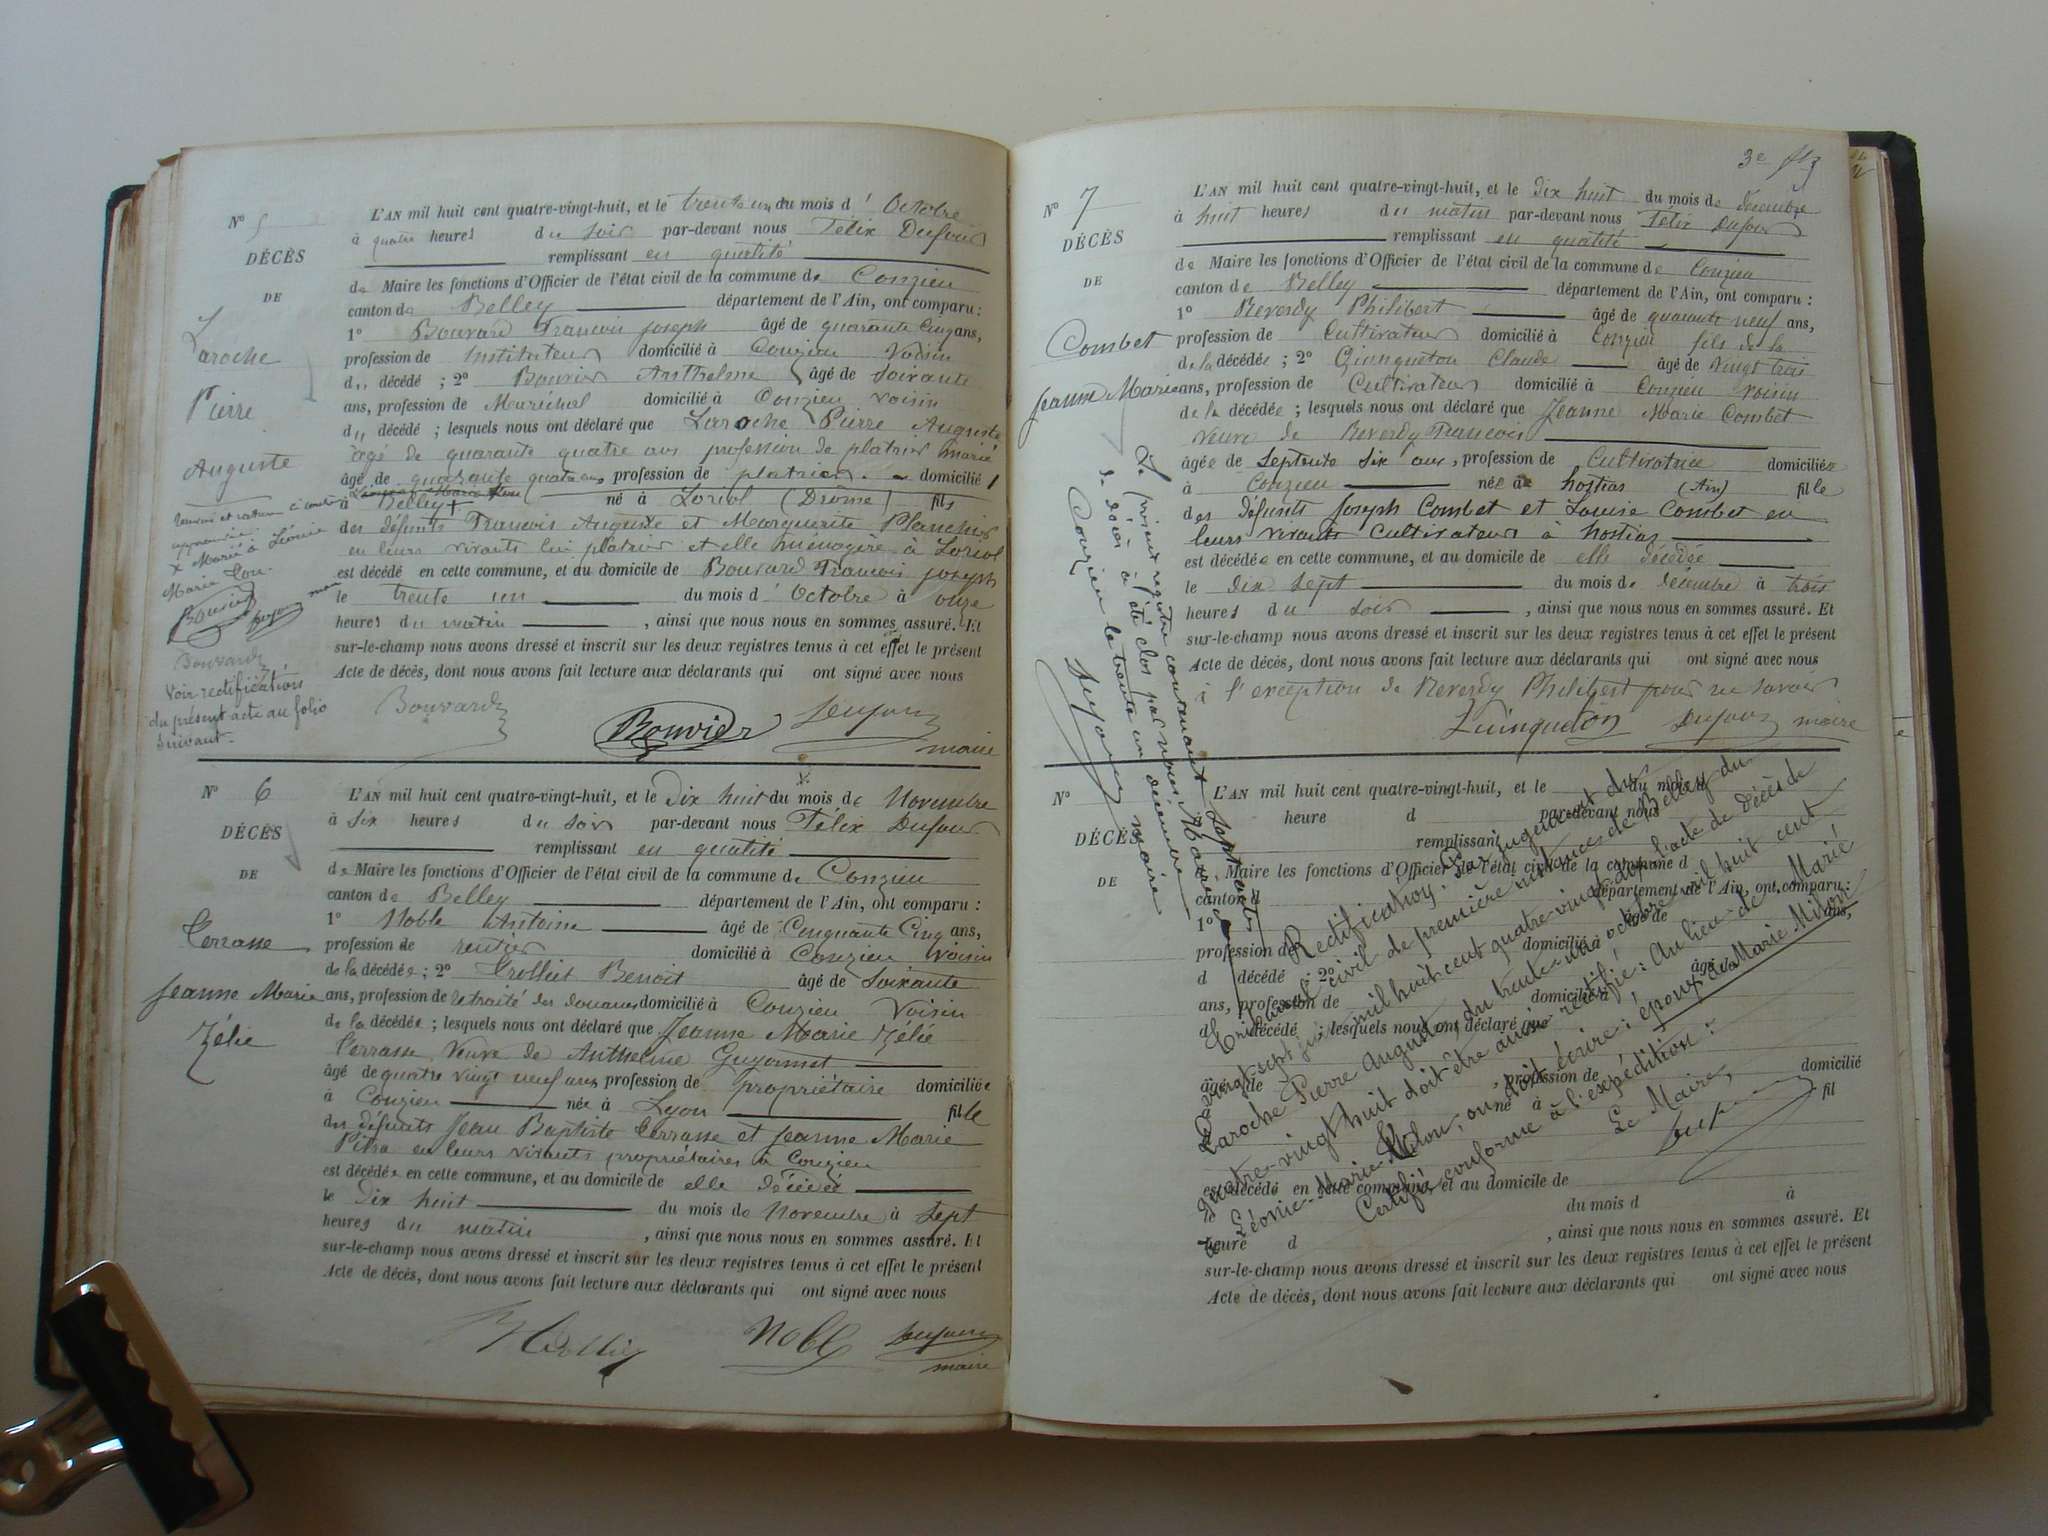 N° 5
DÉCÈS
DE
Laroche
Pierre
Auguste
x Marié à Léonie
Marie
Bouvier
Dufour maire
Bouvard
Voir rectification
du présent acte au folio
suivant.
L'AN mil huit cent quatre-vingt-huit, et le trente un du mois d'Octobre
à quatre heures du soir par-devant nous Félix Dufour
remplissant en qualité
de Maire les fonctions d'Officier de l'état civil de la commune de Conzieu
canton de Belley département de l'Ain, ont comparu :
1° Bouvard François joseph âgé de quarante Cinq ans,
profession de Instituteur domicilié à Conzieu Voisin
du décédé ; 2° Bouvier Anthelme âgé de Soixante
ans, profession de Maréchal domicilié à Conzieu voisin
du décédé ; lesquels nous ont déclaré que Laroche Pierre Auguste
âgé de quarante quatre ans profession de platrier marié
âgé de quarante quatre ans, profession de platrier domicilié
à Belley + né à Loriol (Drôme) fils
des défunts François Auguste et Marguerite Planchier
en leurs vivants lui platrier et elle ménagère à Loriol
est décédé en cette commune, et au domicile de Bouvard François joseph
le trente un du mois d'Octobre à onze
heures du matin , ainsi que nous nous en sommes assuré. Et
sur-le-champ nous avons dressé et inscrit sur les deux registres tenus à cet effet le présent
Acte de décès, dont nous avons fait lecture aux déclarants qui ont signé avec nous
Bouvard Bouvier Dufour
maire
N° 6
DÉCÈS
DE
Terrasse
Jeanne Marie
Zélie
L'AN mil huit cent quatre-vingt-huit, et le Dix huit du mois de Novembre
à Six heures du Soir par-devant nous Félix Dufour
remplissant en qualité
de Maire les fonctions d'Officier de l'état civil de la commune de Conzieu
canton de Belley département de l'Ain, ont comparu :
1° Noble Antoine âgé de Cinquante Cinq ans,
profession de rentier domicilié à Conzieu Voisin
de la décédée ; 2° Trolliet Benoit âgé de Soixante
ans, profession de retraité des douanes domicilié à Conzieu Voisin
de la décédée ; lesquels nous ont déclaré que Jeanne Marie Zélie
Terrasse Veuve de Anthelme Guyonnet
âgé de quatre vingt neuf ans profession de propriétaire domiciliée
à Conzieu née à Lyon fille
des défunts Jean Baptiste Terrasse et Jeanne Marie
Pitra en leurs vivants propriétaires à Conzieu
est décédée en cette commune, et au domicile de elle décédée
le Dix huit du mois de Novembre à Sept
heures du matin , ainsi que nous nous en sommes assuré. Et
sur-le-champ nous avons dressé et inscrit sur les deux registres tenus à cet effet le présent
Acte de décès, dont nous avons fait lecture aux déclarants qui ont signé avec nous
Noble Dufour
maire
N° 7
DÉCÈS
DE
Combet
Jeanne Marie
L'AN mil huit cent quatre-vingt-huit, et le Dix huit du mois de décembre
à huit heures du matin par-devant nous Félix Dufour
remplissant en qualité
de Maire les fonctions d'Officier de l'état civil de la commune de Conzieu
canton de Belley département de l'Ain, ont comparu :
1° Reverdy Philibert âgé de quarante neuf ans,
profession de Cultivateur domicilié à Conzieu fils de la
de la décédée ; 2° Guinqueton Claude âgé de vingt trois
ans, profession de Cultivateur domicilié à Conzieu voisin
de la décédée ; lesquels nous ont déclaré que Jeanne Marie Combet
veuve de Reverdy François
âgée de Septante Six ans, profession de Cultivatrice domiciliée
à Conzieu née à hostias (Ain) fille
des défunts Joseph Combet et Louise Combet en
leurs vivants Cultivateurs à hostias
est décédée en cette commune, et au domicile de elle décédée
le Dix Sept du mois de décembre à trois
heures du Soir , ainsi que nous nous en sommes assuré. Et
sur-le-champ nous avons dressé et inscrit sur les deux registres tenus à cet effet le présent
Acte de décès, dont nous avons fait lecture aux déclarants qui ont signé avec nous
à l'exception de Reverdy Philibert pour ne savoir
Guinqueton Dufour maire
Le présent registre contenant Sept actes
de décès a été clos par nous, Maire de
Conzieu le trente un décembre
Dufour maire
N°
DÉCÈS
DE
L'AN mil huit cent quatre-vingt-huit, et le du mois d
heure d par-devant nous
remplissant
de Maire les fonctions d'Officier de l'état civil de la commune d
canton d département de l'Ain, ont comparu :
1° âgé de ans,
profession de domicilié à
d décédé ; 2° âgé de
ans, profession de domicilié à
d décédé ; lesquels nous ont déclaré que
âgé de , profession de domicilié
à né à fil
est décédé en cette commune, et au domicile de
le du mois d à
heure d , ainsi que nous nous en sommes assuré. Et
sur-le-champ nous avons dressé et inscrit sur les deux registres tenus à cet effet le présent
Acte de décès, dont nous avons fait lecture aux déclarants qui ont signé avec nous
Rectification. Par jugement du
Tribunal civil de première instance de Belley du
vingt sept mil huit cent quatre vingt dix l'acte de décès de
Laroche Pierre Auguste, du trente-un octobre mil huit cent
quatre-vingt huit doit être ainsi rectifié : Au lieu de Marié
Léonie-Marie Milon, on doit écrire : époux de Marie Milon.
Certifié conforme à l'expédition :
Le Maire,
Dufour